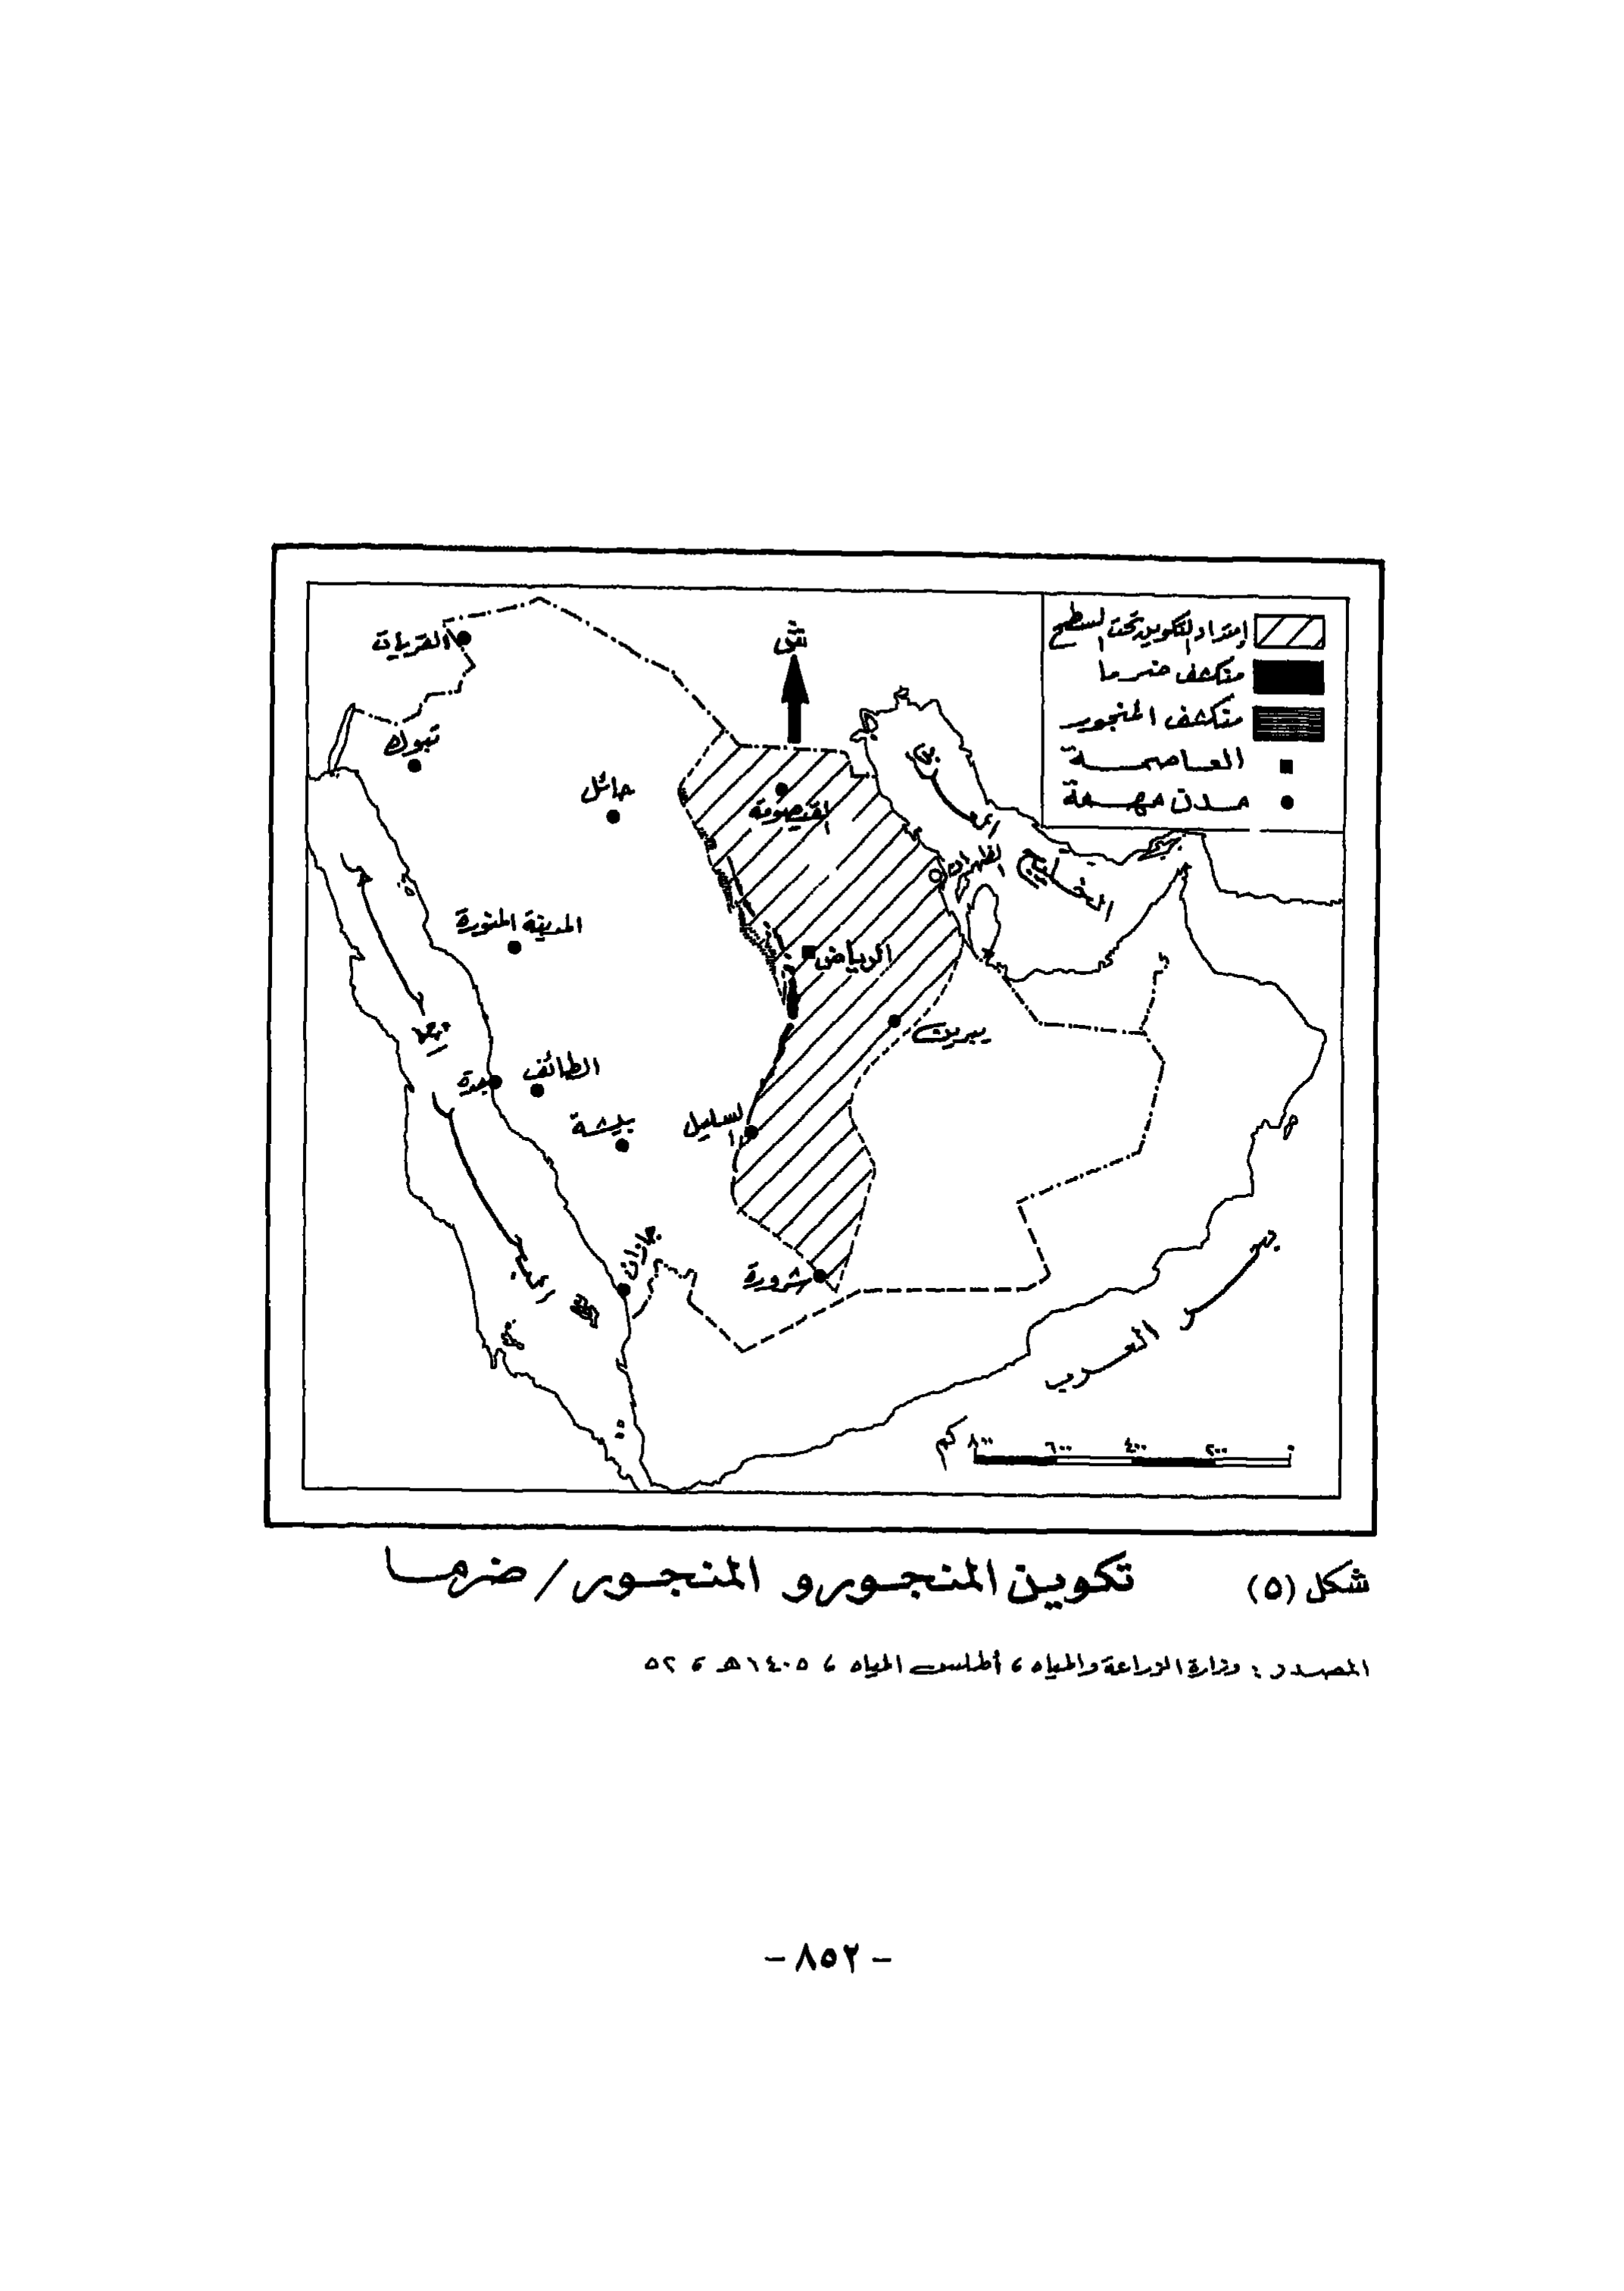 إمتداد التكوين تحت السطح
منكشف ضرما
منكشف المنجور
العاصمة
مدن مهمة
ش
القريات
تبوك
حائل
القيصومة
الظهران
الخليج العربي
المدينة المنورة
الرياض
يبرين
جدة
الطائف
بيشة
السليل
جازان
شرورة
البحر الأحمر
بحر العرب
كم ٨٠٠ ٦٠٠ ٤٠٠ ٢٠٠ ٠
شكل (٥) تكوين المنجور و المنجور / ضرما
المصدر : وزارة الزراعة والمياه ، أطلس المياه ، ١٤٠٥هـ ، ٥٢
- ٨٥٢ -